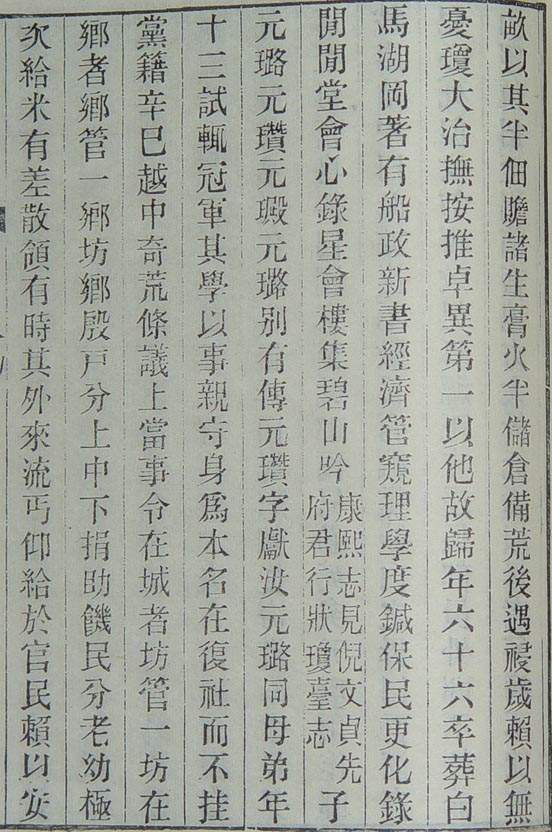 畝以其半佃贍諸生膏火半儲倉備荒後遇祲歲賴以無
憂瓊大治撫按推卓異第一以他故歸年六十六卒葬白
馬湖岡著有船政新書經濟管窺理學度鍼保民更化錄
閒閒堂會心錄星會樓集碧山吟康熙志見倪文貞先府君行狀瓊臺志子
元璐元瓚元瑴元璐别有傳元瓚字獻汝元璐同母弟年
十三試輒冠軍其學以事親守身爲本名在復社而不挂
黨籍辛巳越中奇荒條議上當事令在城者坊管一坊在
鄉者鄉管一鄉坊鄉殷戸分上中下捐助饑民分老幼極
次給米有差散領有時其外來流丐仰給於官民賴以安